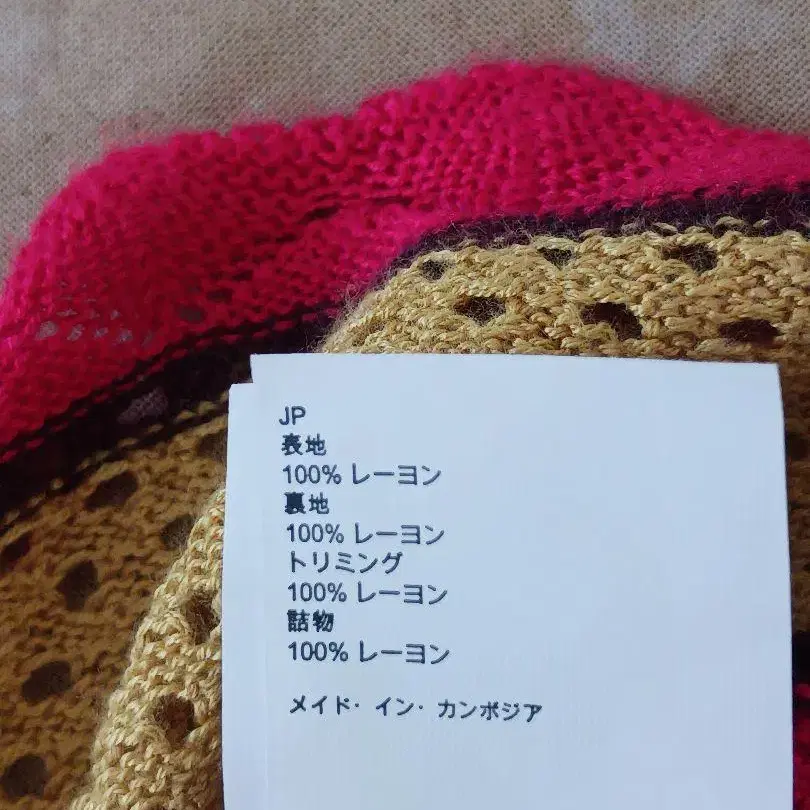 JP
表地
100% レーヨン
裏地
100% レーヨン
トリミング
100% レーヨン
詰物
100% レーヨン
メイド· イン· カンボジア